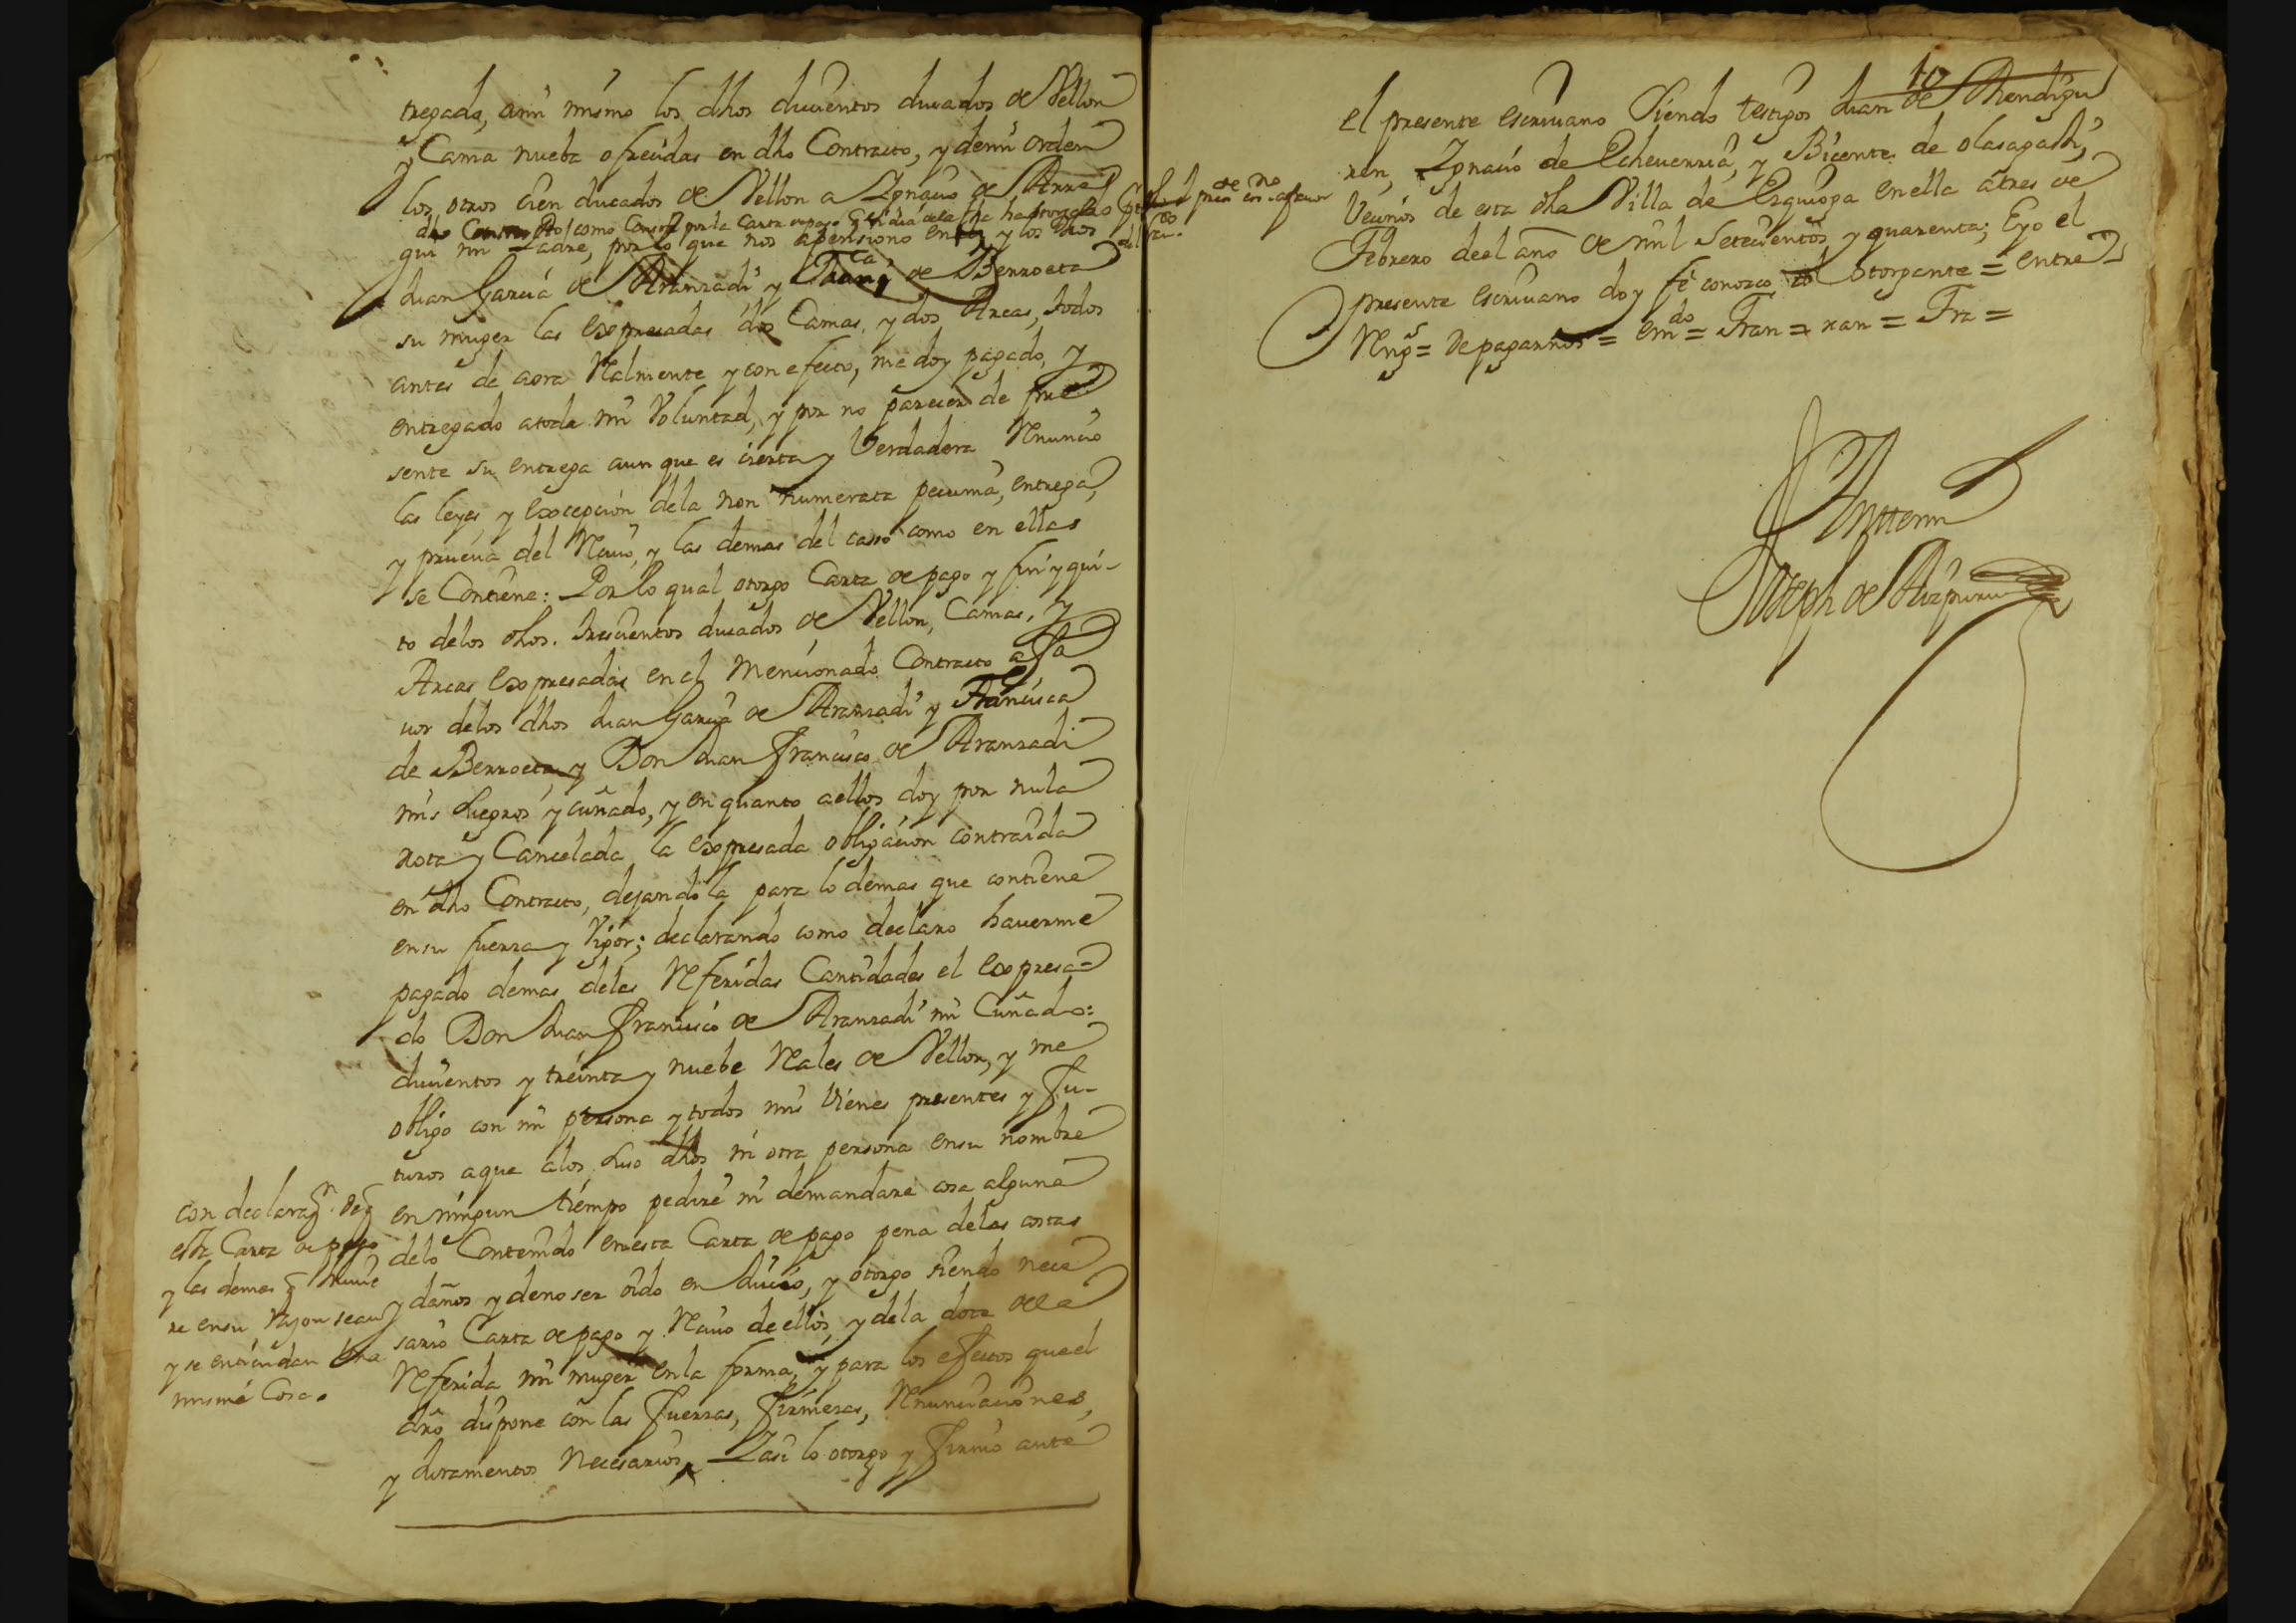 tregado, asi mismo los dhos ducientos ducados de Vellon
y Cama nueba ofrecidas en dho Contracto, y de mi orden
los otros cien ducados de Vellon a Ignacio de Arre
dho como Consta por la Carta de pago q el dia de la fha ha otorgado
gui mi Padre, por lo que nos apensiono en y los dhos
Juan Garcia de Aranzadi y Fran.ca de Berroeta
su muger las expresadas dos Camas, y dos Arcas, todos
antes de aora Realmente y con efecto, me doy pagado, y
entregado a toda mi Voluntad, y por no parecer de pre
sente su entrega aunque es cierta y Verdadera Renuncio
las leyes, y excepcion de la non numerata pecunia, entrega,
y prueva del Recivo, y las demas del casso como en ellas
se Contiene: Por lo qual otorgo Carta de pago y finiqui-
to de los dhos. trescientos ducados de Vellon, Camas, y
Arcas expresadas en el mencionado Contracto a fa
uor de los dhos Juan Garcia de Aranzadi y Francisca
de Berroeta, y Don Juan Francisco de Aranzadi
mis suegros y cuñado, y en quanto a ellos doy por nula
rota y Cancelada la expresada obligacion contraida
en dho Contracto, dejandola para lo demas que contiene
en su fuerza y Vigor; declarando como declaro hauerme
pagado demas de las Referidas Cantidades el expresa-
do Don Juan Francisco de Aranzadi mi Cuñado:
ducientos y treinta y nuebe Reales de Vellon, y me
obligo con mi persona y todos mis Vienes presentes y fu-
turos a que a los suso dhos ni otra persona en su nombre
en ningun tiempo pedire ni demandare cosa alguna
de lo Contenido en esta Carta de pago pena de las costas
y daños y de no ser oido en Juicio, y otorgo siendo nece
sario Carta de pago y Recivo de ellos, y de la dote de la
Referida mi muger en la forma, y para los efectos que el
dro dispone con las fuerzas, firmezas, Renunciaciones,
y Juramentos Necesarios, Y asi lo otorgo y firmo ante
con declaraz.n de q
esta Carta de pago
y las demas q huuie
re en su Razon sean
y se entiendan Una
misma Cosa.
10
el presente escriuano Siendo testigos Juan de Mendigu
ren, Ignacio de Echeuerria, y Bicente de olasagasti,
Vecinos de esta dha Villa de Ezquioga en ella a tres de
Febrero de el año de mil Setecientos y quarenta; E yo el
presente escriuano doy fe conozco al otorgante = entre
Reng.s = de pagarnos = em.do = Fran = ran = Fra =
Antte mi
Joseph de Aizpuru